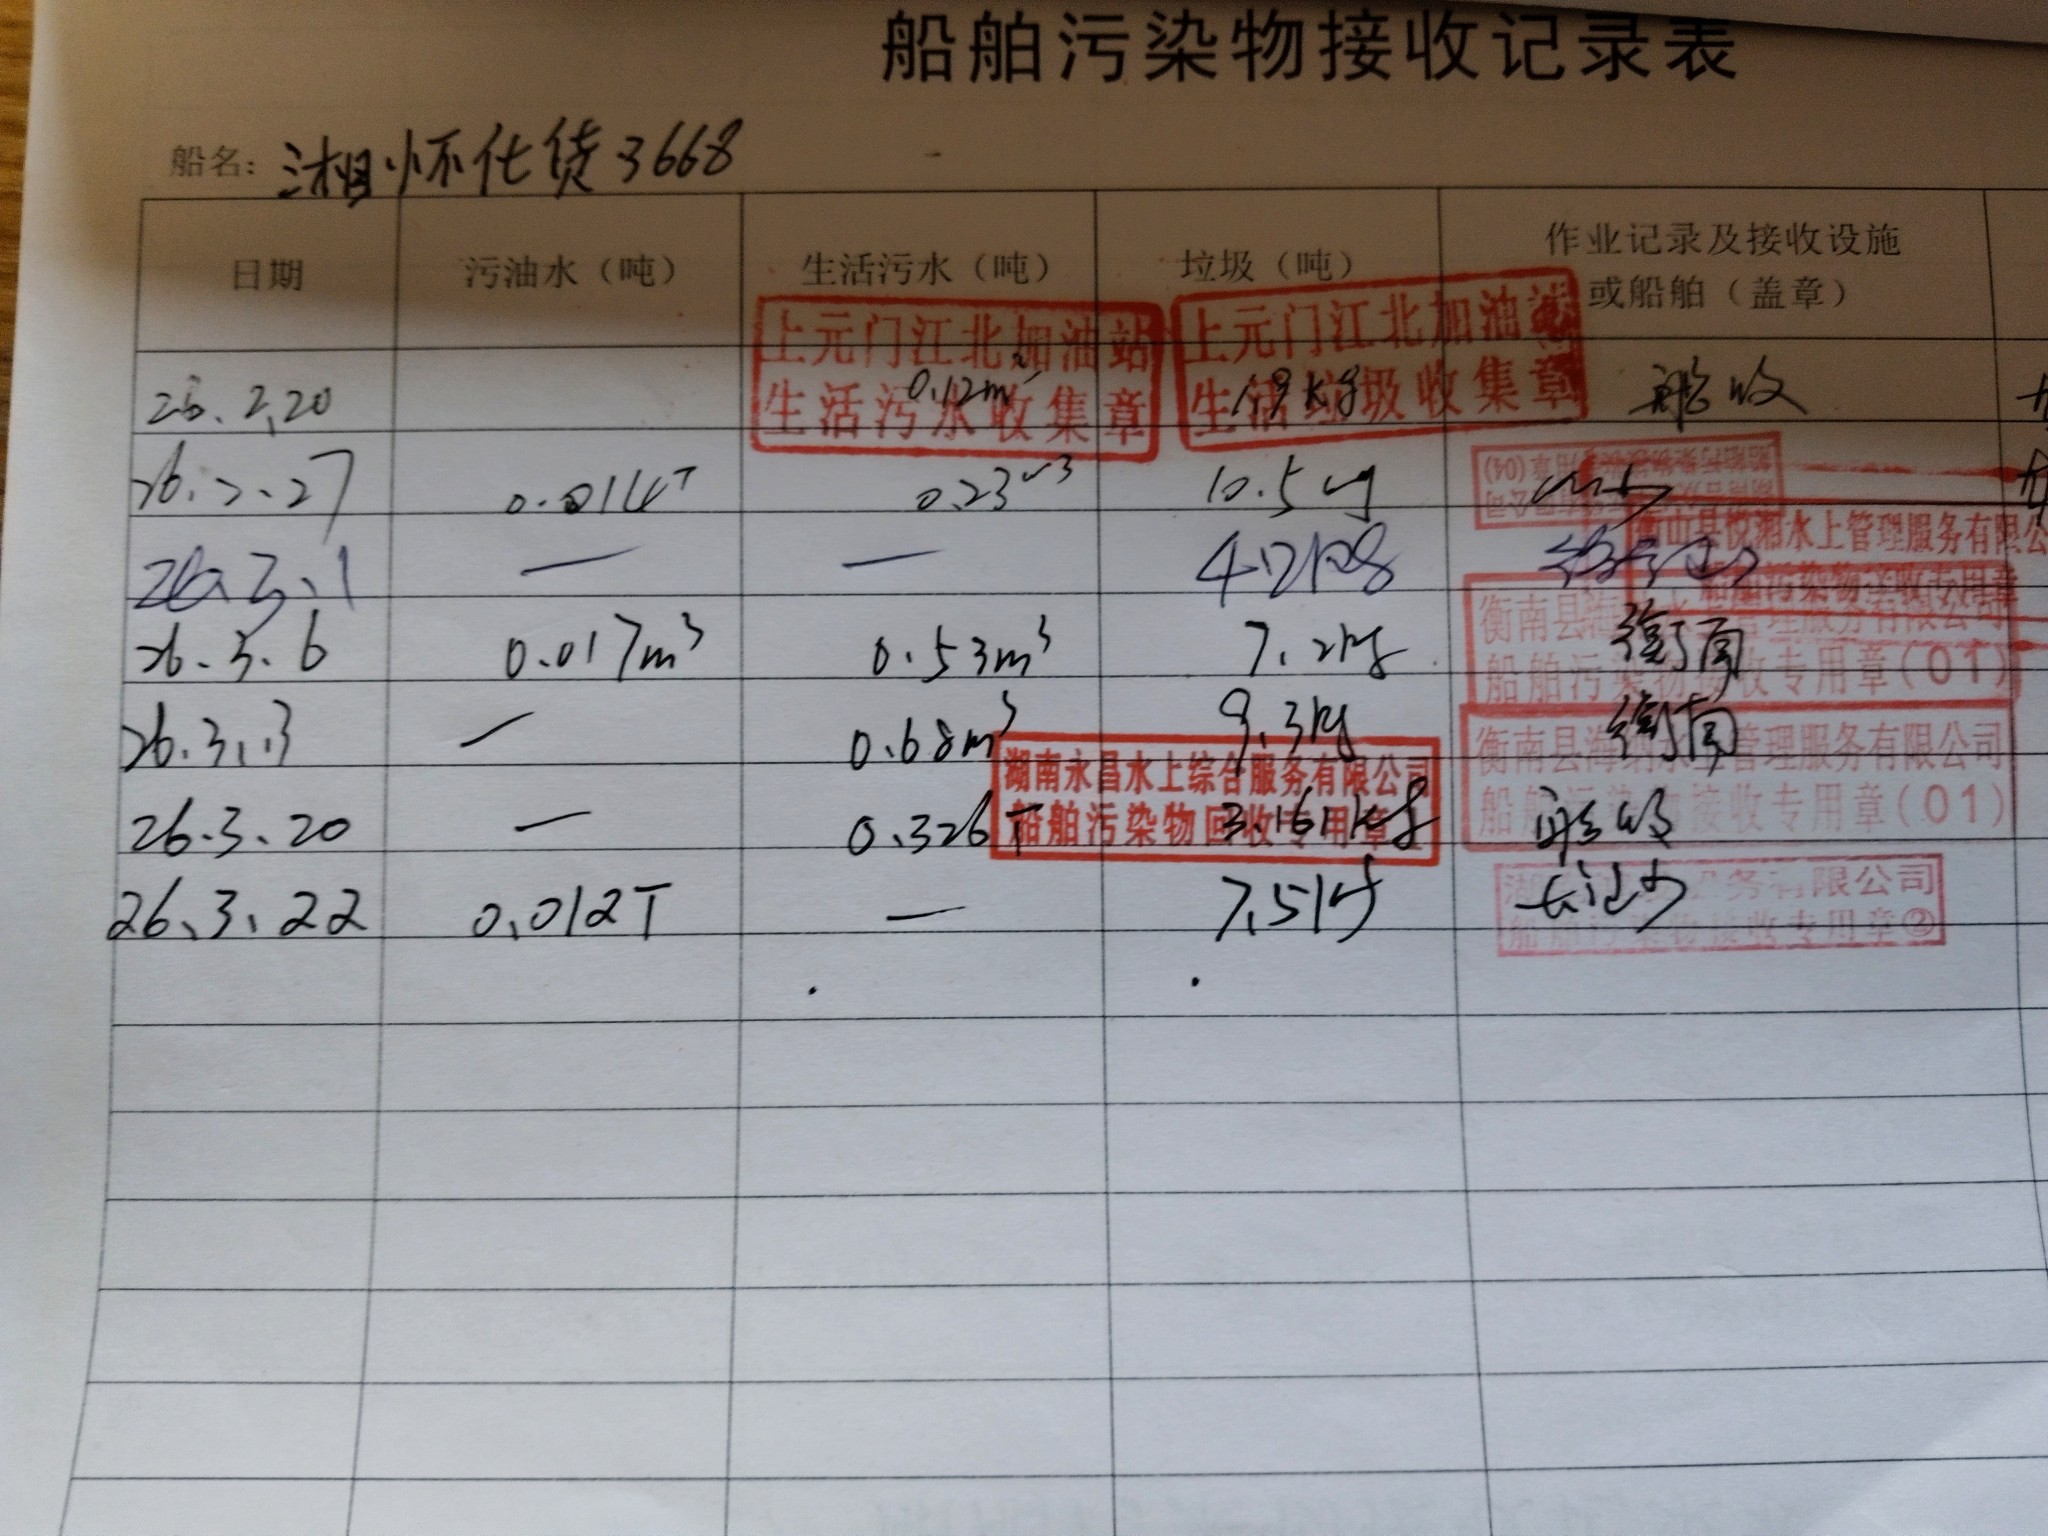 船舶污染物接收记录表
船名: 湘怀化货3668
日期 污油水（吨） 生活污水（吨） 垃圾（吨） 作业记录及接收设施
或船舶（盖章）
上元门江北加油站
生活污水收集章
上元门江北加油站
生活垃圾收集章
26.2.20 0.12m³ 1.9kg 船收
26.2.27 0.23 10.5kg
26.3.1 — — 4.2kg
衡山县悦湘水上管理服务有限公
船舶污染物接收专用章
26.3.6 0.017m³ 0.53m³ 7.2kg 衡南
衡南县海 水上管理服务有限公司
船舶污染物接收专用章(01)
26.3.13 — 0.68m³ 9.3kg 衡南
衡南县海 水上管理服务有限公司
船舶污染物接收专用章(01)
湖南永昌水上综合服务有限公司
船舶污染物回收专用章
26.3.20 — 0.326T 3.161kg 船收
26.3.22 0.012T — 7.5kg 长沙
服务有限公司
船舶污染物接收专用章②